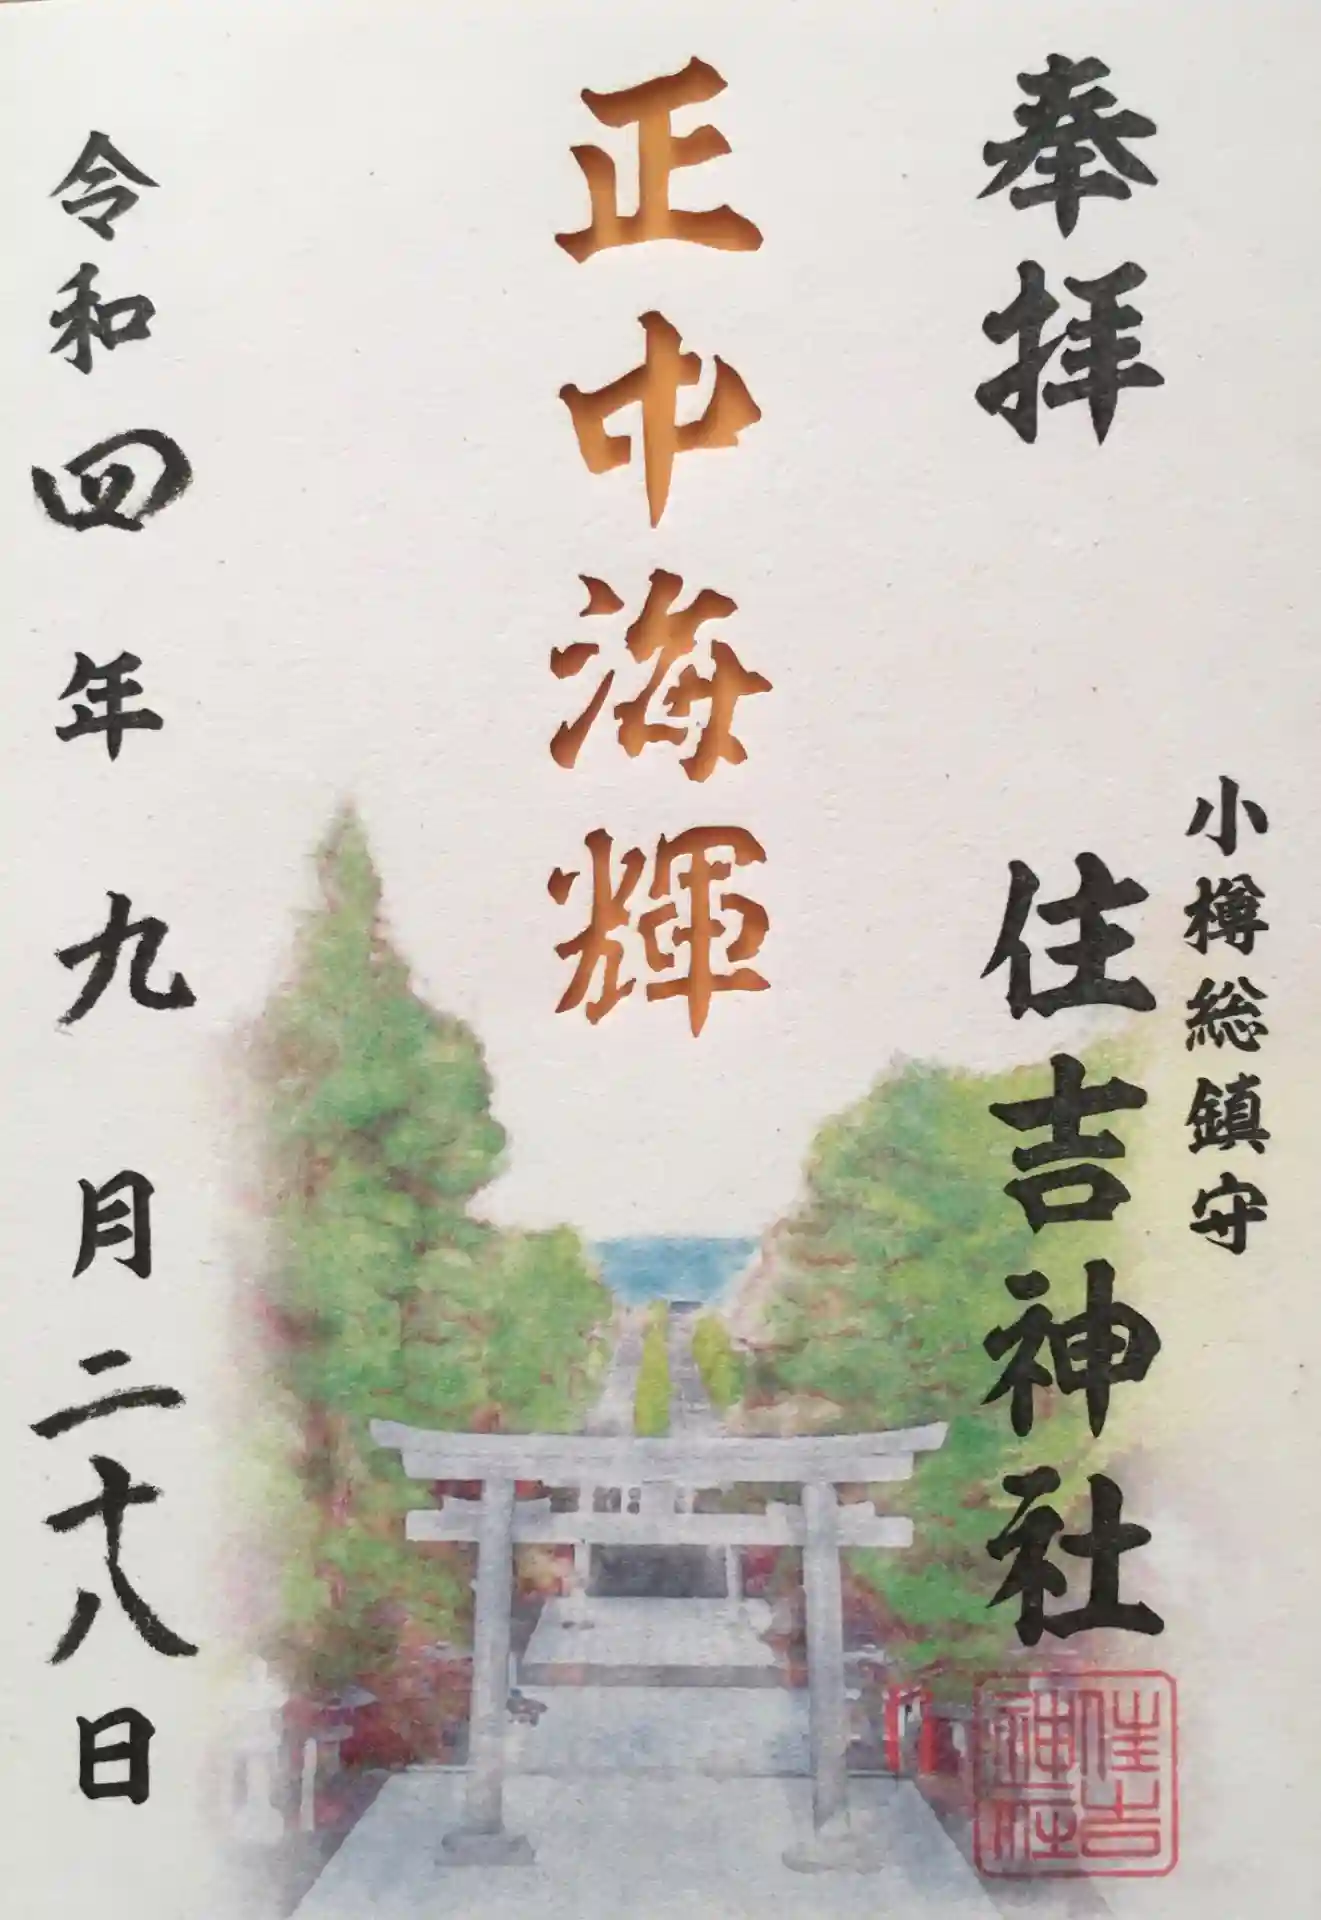 奉拝
小樽総鎮守
住吉神社
住吉神社
正中海輝
令和四年九月二十八日